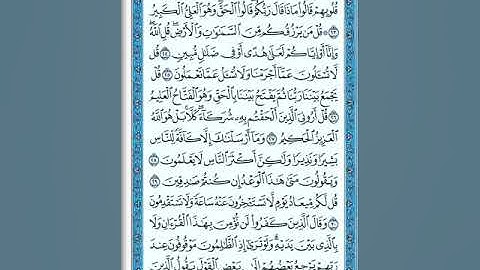 قُلُوبِهِمْ قَالُوا۟ مَاذَا قَالَ رَبُّكُمْ قَالُوا۟ ٱلْحَقَّ وَهُوَ ٱلْعَلِىُّ ٱلْكَبِيرُ
٢٣ قُلْ مَن يَرْزُقُكُم مِّنَ ٱلسَّمَٰوَٰتِ وَٱلْأَرْضِ قُلِ ٱللَّهُ
وَإِنَّآ أَوْ إِيَّاكُمْ لَعَلَىٰ هُدًى أَوْ فِى ضَلَٰلٍ مُّبِينٍ ٢٤ قُل
لَّا تُسْـَٔلُونَ عَمَّآ أَجْرَمْنَا وَلَا نُسْـَٔلُ عَمَّا تَعْمَلُونَ ٢٥ قُلْ
يَجْمَعُ بَيْنَنَا رَبُّنَا ثُمَّ يَفْتَحُ بَيْنَنَا بِٱلْحَقِّ وَهُوَ ٱلْفَتَّاحُ ٱلْعَلِيمُ
٢٦ قُلْ أَرُونِىَ ٱلَّذِينَ أَلْحَقْتُم بِهِۦ شُرَكَآءَ كَلَّا بَلْ هُوَ ٱللَّهُ
ٱلْعَزِيزُ ٱلْحَكِيمُ ٢٧ وَمَآ أَرْسَلْنَٰكَ إِلَّا كَآفَّةً لِّلنَّاسِ
بَشِيرًا وَنَذِيرًا وَلَٰكِنَّ أَكْثَرَ ٱلنَّاسِ لَا يَعْلَمُونَ ٢٨
وَيَقُولُونَ مَتَىٰ هَٰذَا ٱلْوَعْدُ إِن كُنتُمْ صَٰدِقِينَ ٢٩
قُل لَّكُم مِّيعَادُ يَوْمٍ لَّا تَسْتَـْٔخِرُونَ عَنْهُ سَاعَةً وَلَا تَسْتَقْدِمُونَ
٣٠ وَقَالَ ٱلَّذِينَ كَفَرُوا۟ لَن نُّؤْمِنَ بِهَٰذَا ٱلْقُرْءَانِ وَلَا
بِٱلَّذِى بَيْنَ يَدَيْهِ وَلَوْ تَرَىٰٓ إِذِ ٱلظَّٰلِمُونَ مَوْقُوفُونَ عِندَ
رَبِّهِمْ يَرْجِعُ بَعْضُهُمْ إِلَىٰ بَعْضٍ ٱلْقَوْلَ يَقُولُ ٱلَّذِينَ